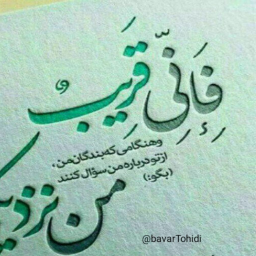 فَإِنِّي قَرِيبٌ
وهنگامی که بندگان من،
از تو درباره من سؤال کنند
(بگو:)
من نزدیک
@bavarTohidi